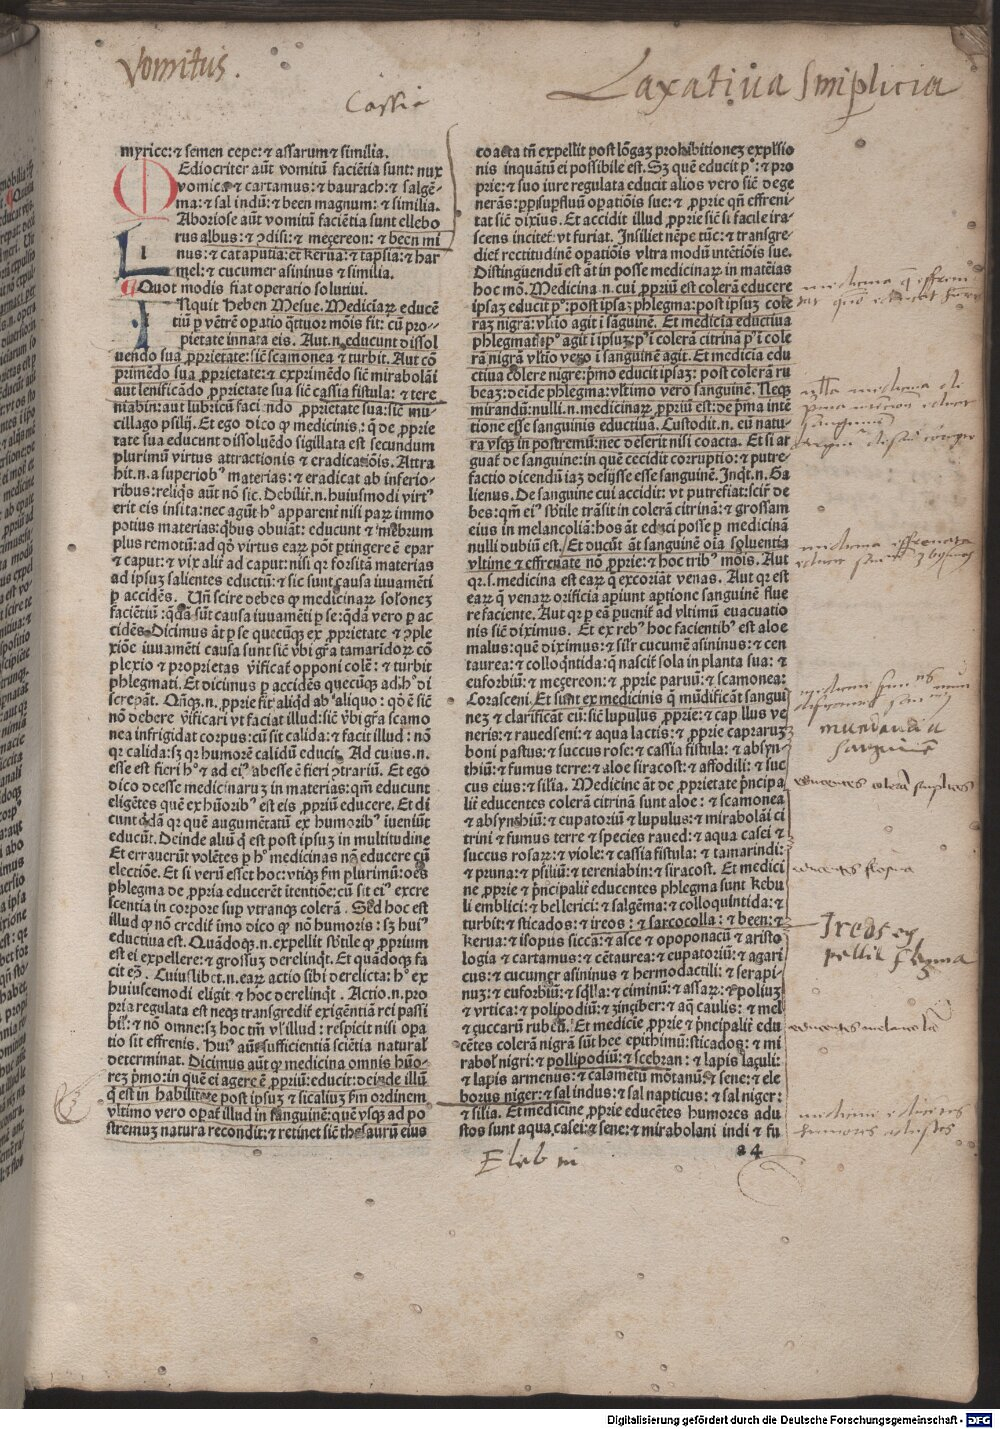 Vomitus.
Cassie
Laxatiua Simplicia
myrice: ⁊ semen cepe: ⁊ assarum ⁊ similia.
MEdiocriter aūt vomitū faciētia sunt: nux
vomica ⁊ cartamus: ⁊ baurach: ⁊ salgē-
ma: ⁊ sal indū: ⁊ been magnum: ⁊ similia.
LAboriose aūt vomitū faciētia sunt ellebo
rus albus: ⁊ ꝯdisi: ⁊ meçereon: ⁊ been mi
nus: ⁊ cataputia: et kerua: ⁊ tapsia: ⁊ har
mel: ⁊ cucumer asininus ⁊ similia.
Quot modis fiat operatio solutiui.
INquit Heben Mesue. Mediciaꝝ educē
tiū ꝑ vētrē oꝑatio q̄ttuor mōis fit: cū pro-
pietate innata eis. Aut.n.educunt dissol
uendo sua ꝓprietate: sic̄ scamonea ⁊ turbit. Aut cō
primēdo sua ꝓprietate: ⁊ exprimēdo sic̄ mirabolāi
aut lenificādo ꝓprietate sua sic̄ cassia fistula: ⁊ tere
niabin: aut lubricū faciendo ꝓprietate sua: sic̄ mu-
cillago psilij. Et ego dico ꝙ medicinis: q̄ de ꝓprie
tate sua educunt dissoluēdo sigillata est secundum
plurimū virtus attractionis ⁊ eradicatōis. Attra
hit.n.a superiobꝰ materias: ⁊ eradicat ab inferio-
ribus: reliq̄s aūt nō sic. Debilis.n.huiusmodi virtꝰ
erit eis insita: nec agūt hꝰ apparent nisi paꝝ immo
potius materias: q̄bus obuiāt: educunt ⁊ mēbrum
plus remotū: ad qō virtus eaꝝ pōt ptingere ē epar
⁊ caput: ⁊ vix alií ad caput: nisi qꝛ forsitā materias
ad ipsuȝ salientes eductū: ⁊ sic sunt causa iuuamēti
ꝑ accidēs. Uñ scire debes ꝙ medicinaꝝ solōnez
faciētiū: q̄dā sūt causa iuuamēti ꝑ se: q̄dā vero ꝑ ac
cidēs. Dicimus āt ꝑ se quecūqȝ ex ꝓprietate ⁊ ꝯple
xiōe iuuamēti causa sunt sic̄ vbi grā tamaridoꝝ cō
plexio ⁊ proprietas vificat̄ opponi colē: ⁊ turbit
phlegmati. Et dicimus ꝑ accidēs quecūqȝ: ad.hꝰ di
screpāt.
nō debere vificari vt faciat illud: sic̄ vbi grā scamo
nea infrigidat corpus: cū sit calida: ⁊ facit illud: nō
qꝛ calida: sȝ qꝛ humorē calidū educit. Ad cuius.n.
esse est fieri hꝰ ⁊ ad eiꝰ abesse ē fieri ꝯtrariū. Et ego
dico deesse medicinaruȝ in materias: qm̄ educunt
eligētes quē exhūoribꝰ est eis ꝓpriū educere. Et di
cunt q̄dā qꝛ quē augumētatū ex humoribꝰ iueniūt
educūt. Deinde aliū q̄ est post ipsuȝ in multitudine
Et errauerūt volētes ꝑ hꝰ medicinas nō educere cū
electiōe. Et si verū esset hoc: vtiqȝ ẜm plurimū: oēs
phlegma de ꝓpria educerēt itentiōe: cū sit eiꝰ excre
scentia in corpore sup vtranqȝ colerā. Sed hoc est
illud ꝙ nō credit̄ imo dico ꝙ nō humoris: sȝ huiꝰ
eductiua est. Quādoqȝ.n.expellit sbtile ꝙ ꝓprium
est ei expellere: ⁊ grossuȝ derelinqt. Et quādoqȝ fa
cit ꝯ̄. Cuiuslibet.n.eaꝝ actio sibi derelicta: hꝰ ex
huiuscemodi eligit ⁊ hoc derelinqt. Actio.n.pro
pria regulata est neqȝ transgredit̄ exigentiā rei passi
bil: ⁊ nō omne: sȝ hoc tm̄ vl illud: respicit nisi opa
tio sit effrenis. Huiꝰ aūt sufficientiā sciētia natural
determinat. Dicimus aūt ꝙ medicina omnis hūo-
reȝ pmo: in quē ei agere ē ꝓpriū: educit: deinde illū
q̄ est in habilitate post ipsuȝ ⁊ sic alius ẜm ordinem
vltimo vero opat illud in sanguinē: quē vsqȝ ad po
stremuȝ natura recondit: ⁊ retinet sic̄ thesaurū eius
coacta tn̄ expellit post lōgaȝ prohibitioneȝ explsio
nis inquātū ei possibile est. Sȝ quē educit pꝰ: ⁊ pro
prie: ⁊ suo iure regulata educit alios vero sic̄ dege
nerās: ꝓpsupfluū opatiōis sue: ⁊ ꝓprie qn̄ effreni
tat sic̄ diximus. Et accidit illud ꝓprie sic̄ si facile ira-
scens incitet: vt furiat. Insiliet nēpe tūc: ⁊ transgre-
diet rectitudinē opatiōis vltra modū intētiōis sue.
Distinguendū est āt in posse medicinaꝝ in matēias
hoc mō. Medicina.n.cui ꝓpriū est colerā educere
ipsaȝ educit pꝰ: post ipsaȝ phlegma: post ipsuȝ cole
raȝ nigrā: vltio agit i sāguinē. Et medicia eductiua
phlegmatꝭ pꝰ agit i ipsuȝ: pꝰ i colerā citrinā pꝰ i cole
rā nigrā vltio vero i sanguinē agit. Et medicia edu
ctiua colere nigre: pmo educit ipsaȝ: post colerā ru
beaȝ: deide phlegma: vltimo vero sanguinē. Neqȝ
mirandū: nulli.n.medicinaꝝ ꝓpriū est: de pma inte
tione esse sanguinis eductiuā. Custodit.n.eū natu-
ra vsqȝ in postremū: nec deserit nisi coacta. Et si ar
guat̄ de sanguine: in quē cecidit corruptio: ⁊ putre-
factio dicendū iaȝ desijsse esse sanguinē. Inqt.n.Ga
lienus. De sanguine cui accidit: vt putrefiat: scir de
bes: qm̄ eiꝰ sbtile trāsit in colerā citrinā: ⁊ grossam
eius in melancoliā: hos āt educi posse ꝑ medicinā
nulli dubiū est. Et ducūt āt sanguinē oīa soluentia
vltime ⁊ effrenate nō ꝓprie: ⁊ hoc tribꝰ mōis. Aut
qꝛ.s.medicina est eaꝝ ꝙ excoriāt venas. Aut qꝛ est
eaꝝ q̄ venaꝝ orificia apiunt aptione sanguinē flue
re faciente. Aut qꝛ ꝑ eā puenit ad vltimū euacuatio
nis sic̄ diximus. Et ex rebꝰ hoc facientibꝰ est aloe
malus: quē diximus: ⁊ silr cucumē asininus: ⁊ cen
taurea: ⁊ colloq̄ntida: q̄ nascit sola in planta sua: ⁊
eufurbiū: ⁊ meçereon: ⁊ ꝓprie paruū: ⁊ scamonea:
Corasceni. Et sunt ex medicinis q̄ mūdificāt sangui
neȝ ⁊ clarificāt eū: sic̄ lupulus ꝓprie: ⁊ capillus ve
neris: ⁊ rauedseni: ⁊ aqua lactis: ⁊ ꝓprie capraruȝ
boni pastus: ⁊ succus rose: ⁊ cassia fistula: ⁊ absyn-
thiū: ⁊ fumus terre: ⁊ aloe siracost: ⁊ affodili: ⁊ suc
cus eius: ⁊ silia. Medicine āt de ꝓprietate pncipa
lií educentes colerā citrinā sunt aloe: ⁊ scamonea
⁊ absynthiū: ⁊ eupatoriū ⁊ lupulus: ⁊ mirabolāi ci
trini ⁊ fumus terre ⁊ species raued: ⁊ aqua casei ⁊
succus rosaꝝ: ⁊ viole: ⁊ cassia fistula: ⁊ tamarindi:
⁊ pruna: ⁊ psiliū: ⁊ tereniabin: ⁊ siracost. Et medici
ne ꝓprie ⁊ pncipalií educentes phlegma sunt kebu
li emblici: ⁊ bellerici: ⁊ salgēma: ⁊ colloquintida: ⁊
turbit: ⁊ sticados: ⁊ ireos: ⁊ sarcocolla: ⁊ been: ⁊
kerua: ⁊ isopus siccā: ⁊ asce ⁊ opoponacū ⁊ aristo
logia ⁊ cartamus: ⁊ cētaurea: ⁊ eupatoriū: ⁊ agari
cus: ⁊ cucumer asininus ⁊ hermodactili: ⁊ serapi-
nuȝ: ⁊ euforbiū: ⁊ sq̄lla: ⁊ ciminū: ⁊ assaꝝ: ⁊ poliuȝ
⁊ vrtica: ⁊ polipodiū: ⁊ zinȝiber: ⁊ aq̄ caulis: ⁊ mel
⁊ çuccarū rubeū. Et medicie ꝓprie ⁊ pncipalií edu
cētes colerā nigrā sūt hee epithimū: sticados: ⁊ mi
rabol nigri: ⁊ pollipodiū: ⁊ scebran: ⁊ lapis laȝuli:
⁊ lapis armenus: ⁊ calametū mōtanū: ⁊ sene: ⁊ ele
borus niger: ⁊ sal indus: ⁊ sal napticus: ⁊ sal niger:
⁊ silia. Et medicine ꝓprie educētes humores adu
stos sunt aqua casei: ⁊ sene: ⁊ mirabolani indi ⁊ fu
a4
mundantia
sanguinē
Ireos ex
pellit flegma
educentes melancoliā
Eleb ni
Digitalisierung gefördert durch die Deutsche Forschungsgemeinschaft - DFG